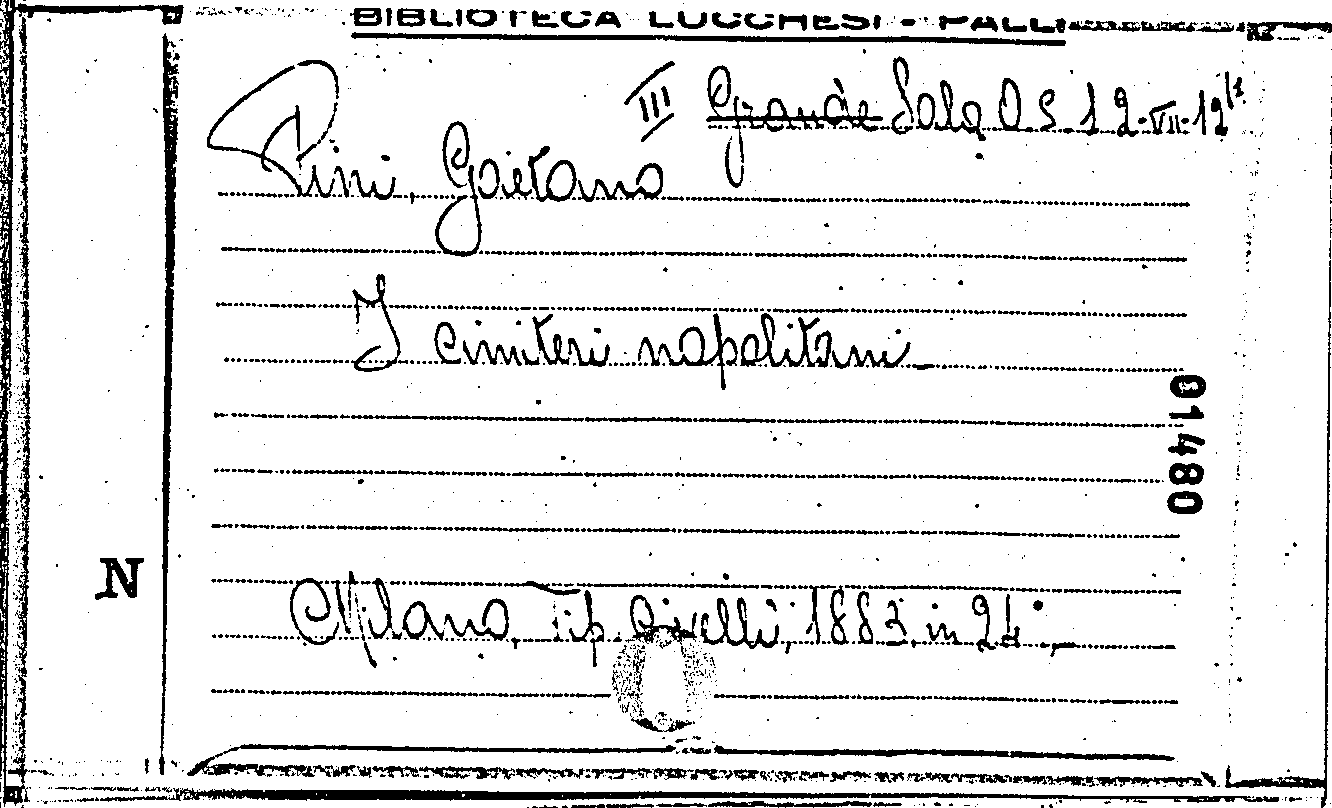 BIBLIOTECA LUCCHESI - PALLI
III Grande Sala O S 1 2-VII-12
Pini, Gaetano
I cimiteri napolitani
01480
N
Milano, Tip. Civelli, 1883, in 24°,